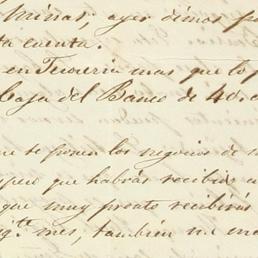 Chinas; ayer dimos po
ta cuenta.
en Tesoreria mas que lo p
Caja del Banco de 40.0
ue se ponen los negocios de
que habrás recibido
que muy pronto recibirás
mes, tambien me en